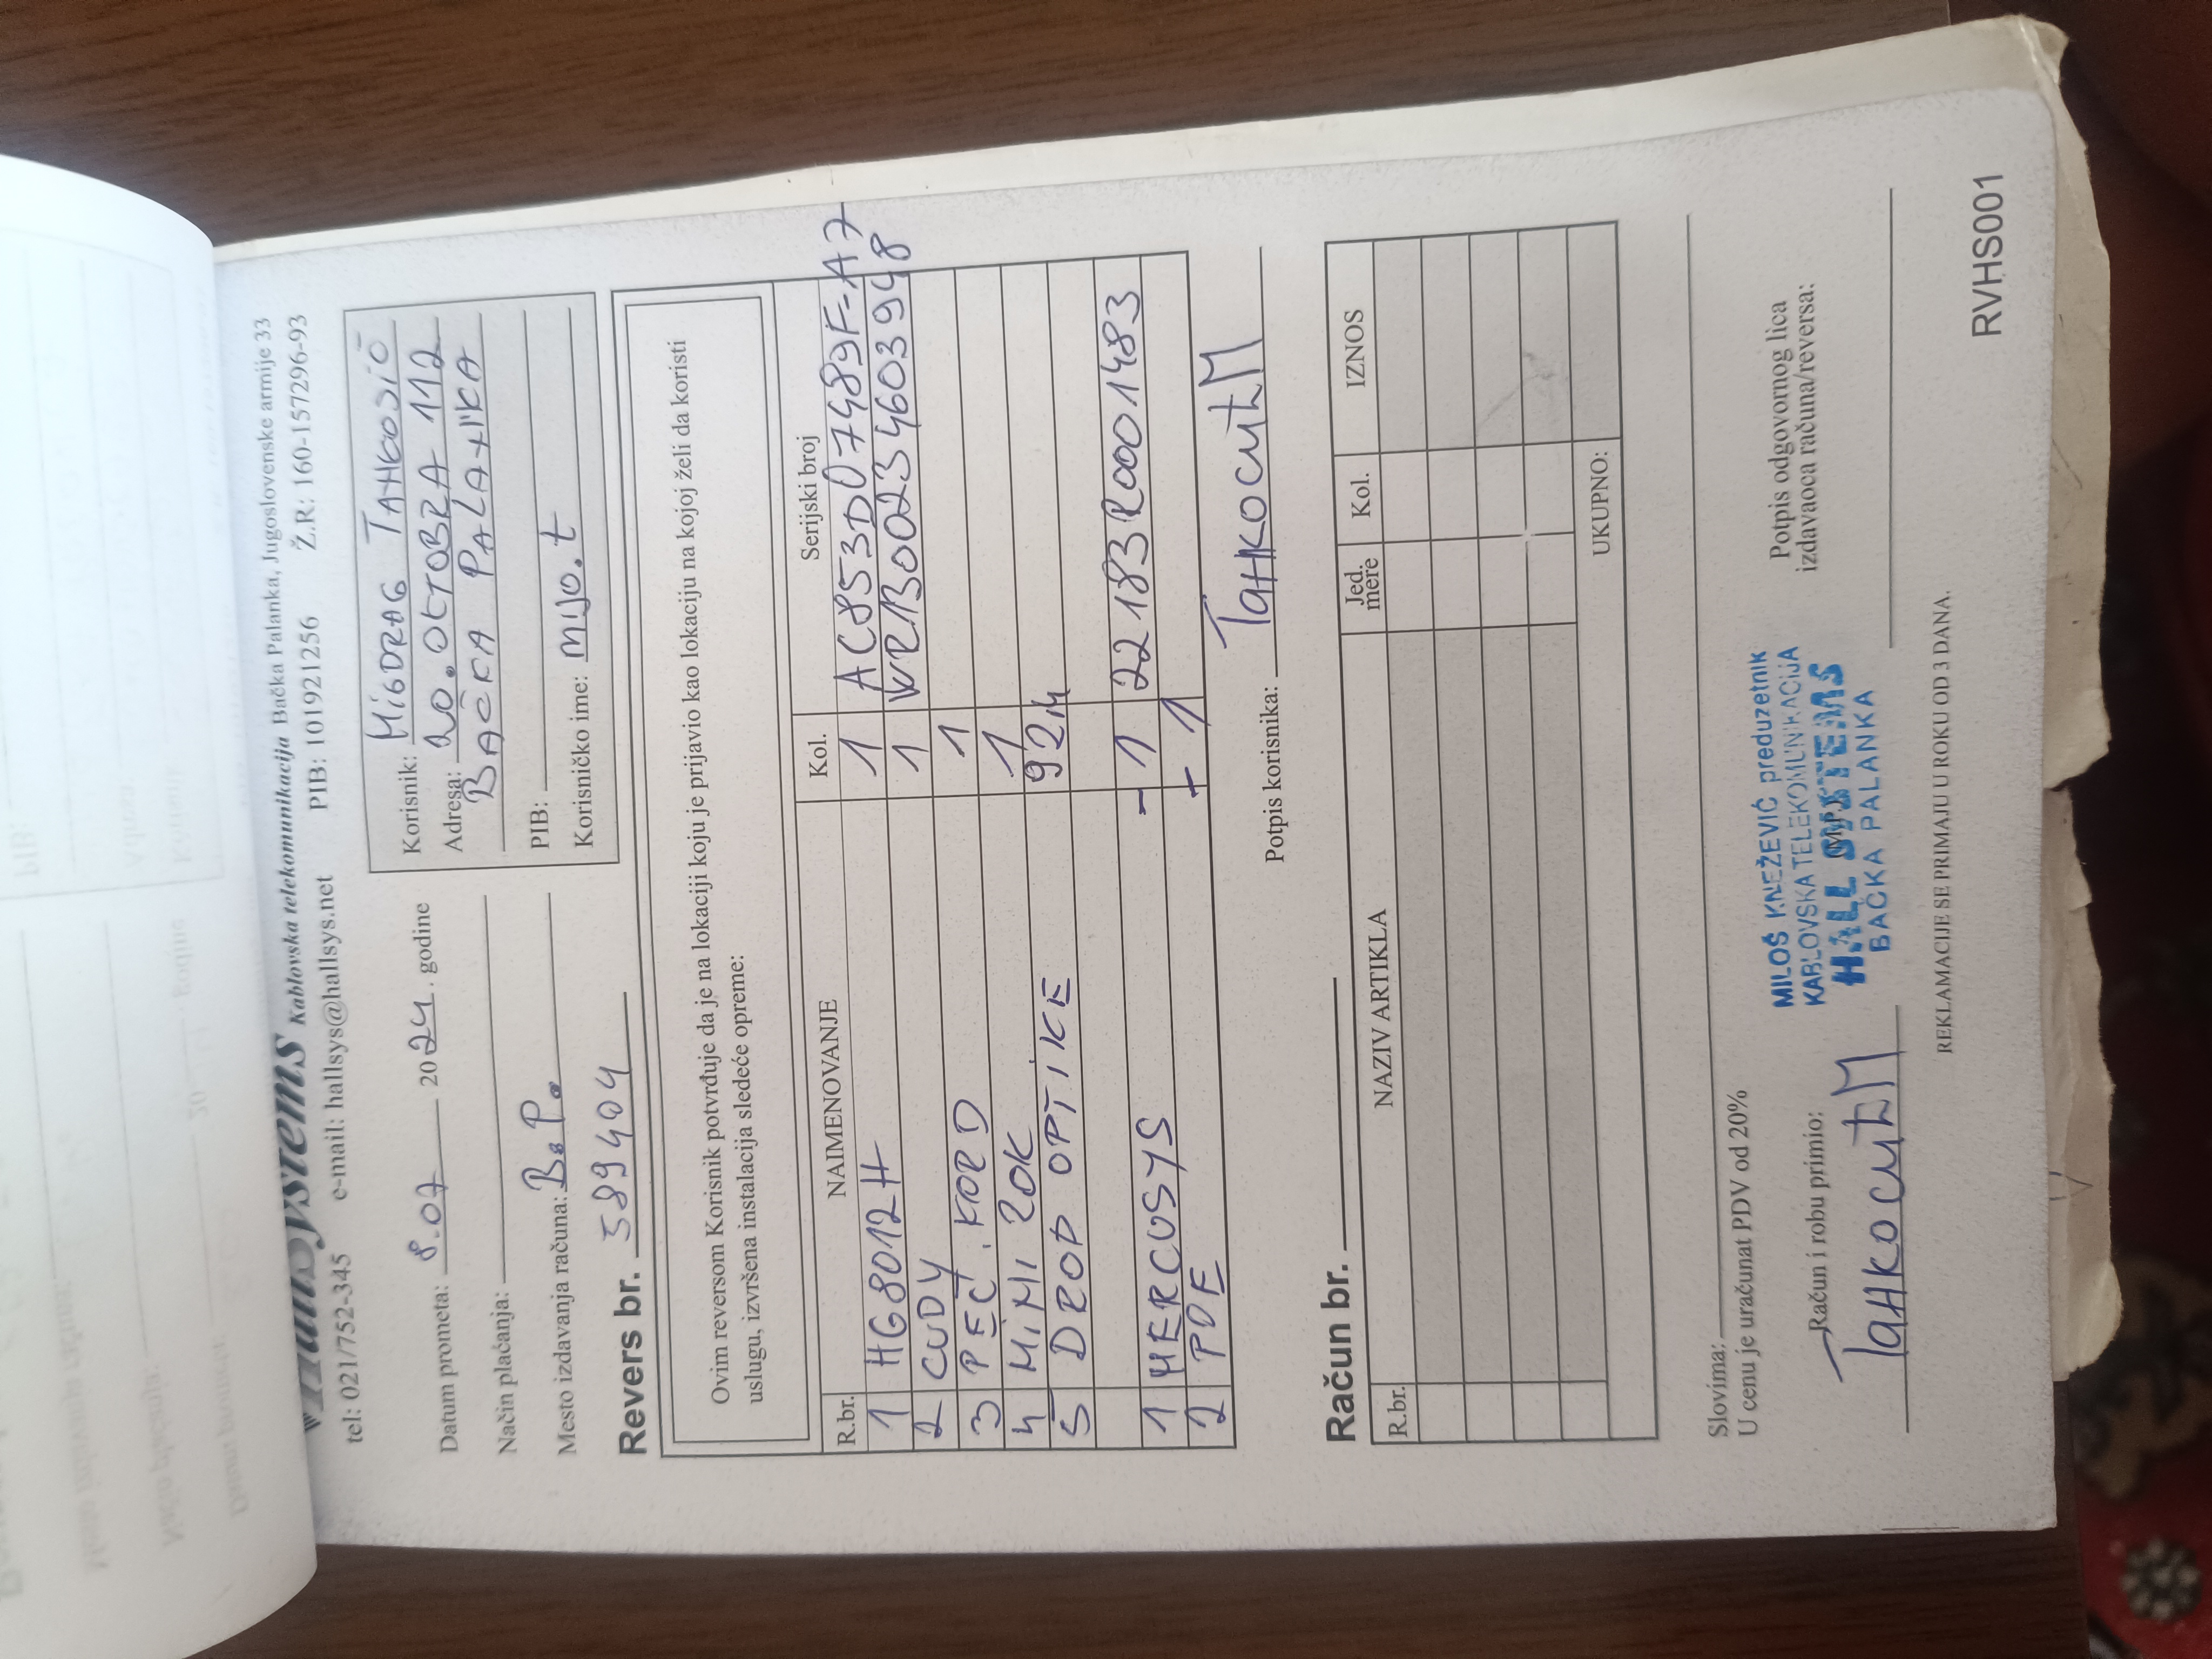 HallSystems Kablovska telekomunikacija Bačka Palanka, Jugoslovenske armije 33
tel: 021/752-345 e-mail: hallsys@hallsys.net PIB: 101921256 Ž.R: 160-157296-93
Datum prometa: 8.07 2024. godine
Način plaćanja:
Mesto izdavanja računa: B.P.
Korisnik: MIODRAG TANKOSIĆ
Adresa: 20. OKTOBRA 112
BAČKA PALANKA
PIB:
Korisničko ime: mijo.t
Revers br. 589404
Ovim reversom Korisnik potvrđuje da je na lokaciji koju je prijavio kao lokaciju na kojoj želi da koristi
uslugu, izvršena instalacija sledeće opreme:
R.br. NAIMENOVANJE Kol. Serijski broj
1 HG8012H 1 AC853D07489F-A7
2 CUDY 1 WR1300234603948
3 PEČ. KORD 1
4 MINI ZOK 1
5 DROP OPTIKE 92m
1 MERCUSYS - 1 22183R0001483
2 POE + 1
Potpis korisnika: Танкосић М
Račun br.
R.br. NAZIV ARTIKLA Jed. mere Kol. IZNOS
UKUPNO:
Slovima:
U cenu je uračunat PDV od 20%
Račun i robu primio:
Танкосић М
MILOŠ KNEŽEVIĆ preduzetnik
KABLOVSKA TELEKOMUNIKACIJA
HALL SYSTEMS
BAČKA PALANKA
Potpis odgovornog lica
izdavaoca računa/reversa:
REKLAMACIJE SE PRIMAJU U ROKU OD 3 DANA.
RVHS001